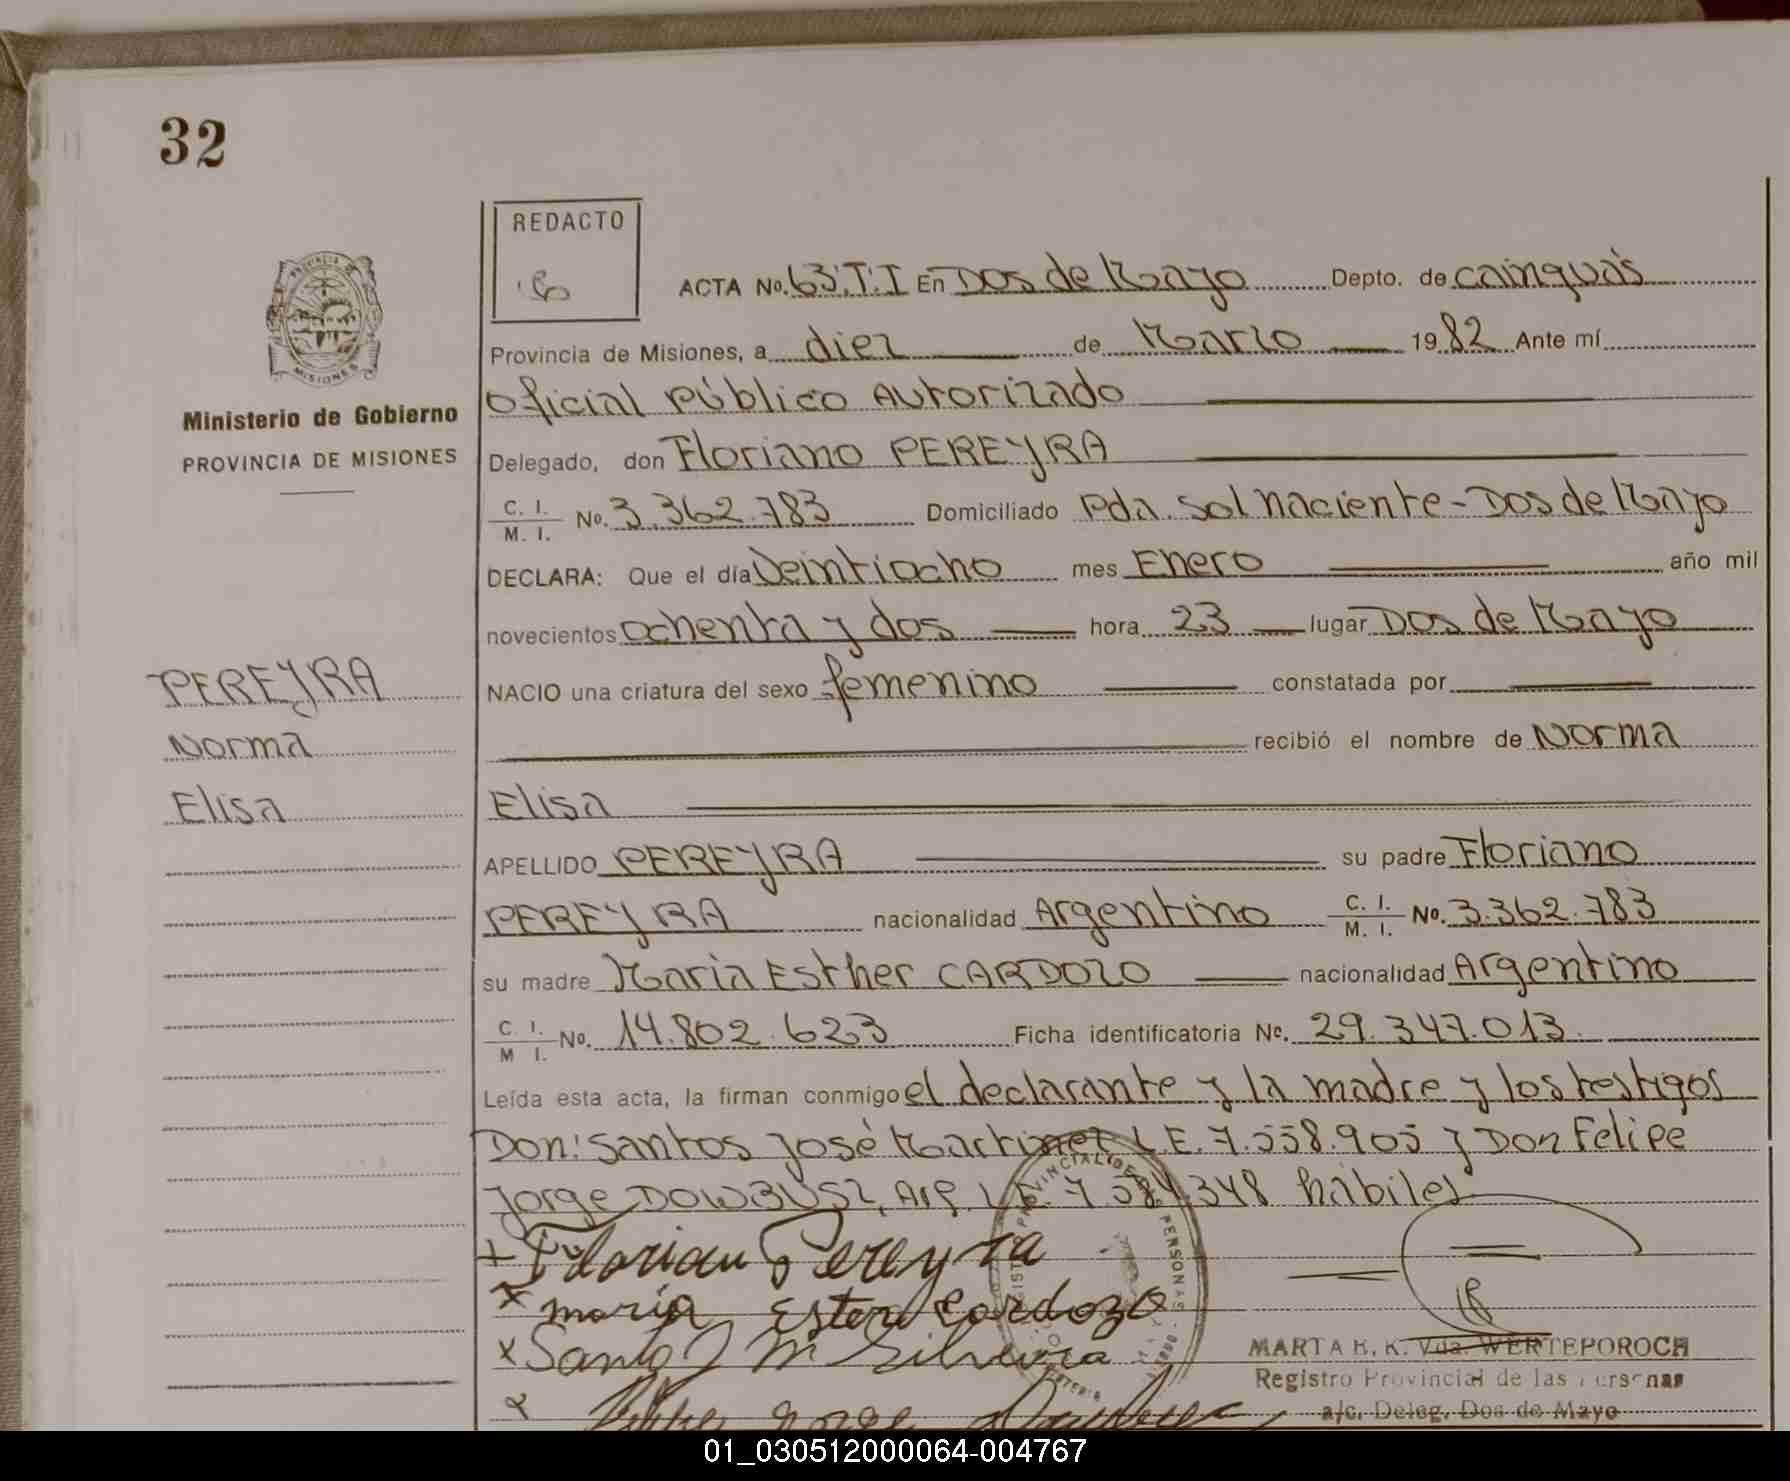 32
REDACTO
ACTA No. 63.T.I En Dos de Mayo Depto. de Cainguás
Provincia de Misiones, a diez de Marzo 1982 Ante mí
Oficial Público Autorizado
Ministerio de Gobierno
PROVINCIA DE MISIONES
Delegado, don Floriano PEREYRA
C. I. M. I. No. 3.362.783 Domiciliado Pda. Sol Naciente - Dos de Mayo
DECLARA: Que el día Veintiocho mes Enero año mil
novecientos ochenta y dos hora 23 lugar Dos de Mayo
PEREYRA
NACIO una criatura del sexo femenino constatada por
Norma
recibió el nombre de Norma
Elisa
Elisa
APELLIDO PEREYRA su padre Floriano
PEREYRA nacionalidad Argentino C. I. M. I. No. 3.362.783
su madre Maria Esther CARDOZO nacionalidad Argentino
C. I. M I. No. 14.802.623 Ficha identificatoria No. 29.347.013.
Leída esta acta, la firman conmigo el declarante y la madre y los testigos
Don: Santos José Martinez L.E. 7.558.905 y Don Felipe
Jorge DOWBUSZ, Arg. L.E. 7.584.348 hábiles
Florian Pereyra
maria Ester Cardozo
Santo J M Silveira
MARTA H. K. Vda. WERTEPOROCH
Registro Provincial de las Personas
a/c. Deleg. Dos de Mayo
01_030512000064-004767